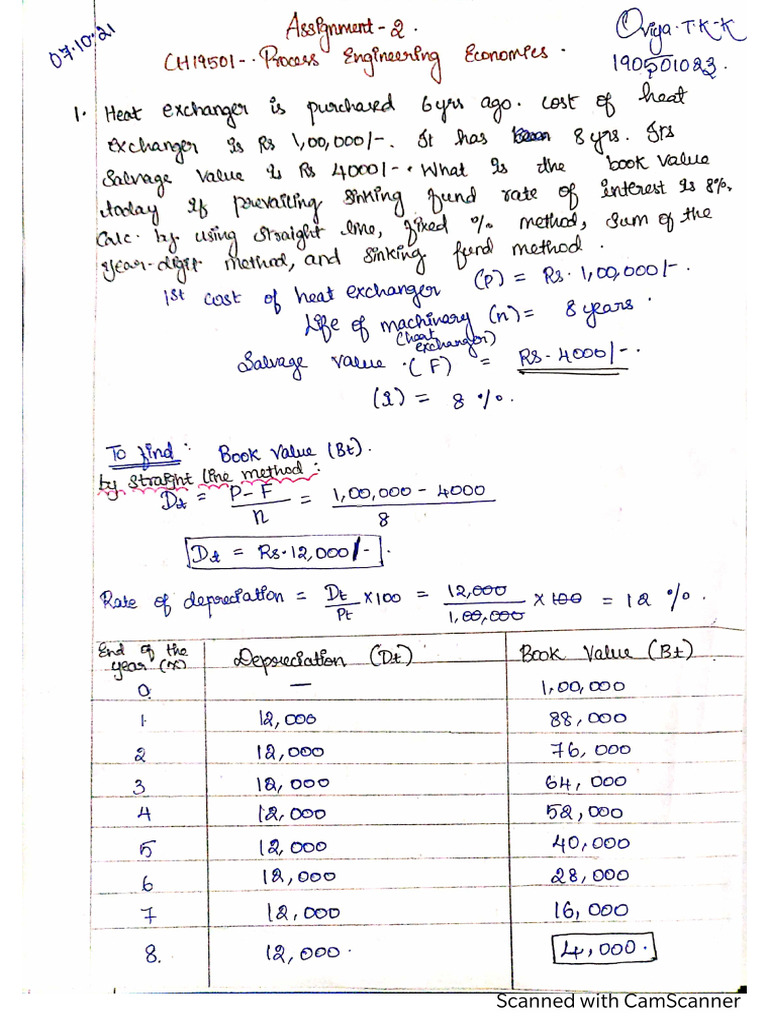 07.10.21
Assignment-2.
Oviya.T.K-K
CH19501-. Process Engineering Economics.
190501023.
1. Heat exchanger is purchased 6yrs ago. Cost of heat
exchanger is Rs 1,00,000/-. It has 8 yrs. Its
Salvage value is Rs 4000/-. What is the book value
today if prevailing sinking fund rate of interest is 8%.
Calc. by using straight line, fixed % method, sum of the
year-digit method, and sinking fund method.
1st cost of heat exchanger (P) = Rs. 1,00,000/-.
Life of machinery (n) = 8 years.
(heat exchanger)
Salvage value (F) = RS-4000/-.
(i) = 8 %.
To find: Book value (Bt).
by straight line method:
Dt = P-F / n = 1,00,000 - 4000 / 8
Dt = Rs.12,000/-.
Rate of depreciation = Dt/Pt X100 = 12,000/1,00,000 X 100 = 12 %.
End of the year (x) Depreciation (Dt) Book Value (Bt)
0. — 1,00,000
1. 12,000 88,000
2 12,000 76,000
3 12,000 64,000
4 12,000 52,000
5 12,000 40,000
6 12,000 28,000
7 12,000 16,000
8. 12,000. 4,000.
Scanned with CamScanner